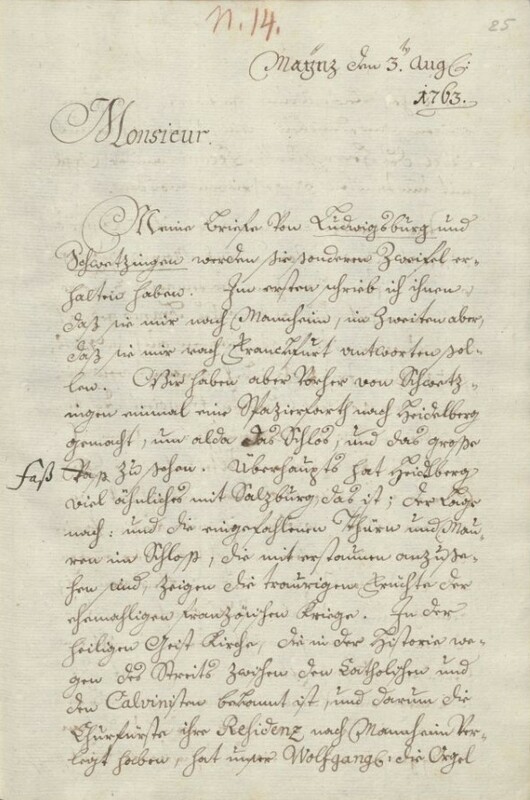 N. 14.
25
Maynz den 3.ten Aug:
1763.
Monsieur.
Meine Briefe von Ludwigsburg und
Schwetzingen werden sie sonderen Zweifel er-
halten haben. Im ersten schrieb ich ihnen,
daß sie mir nach Mannheim, im Zweiten aber,
daß sie mir nach Franckfurt antworten sol-
len. Wir haben aber vorher von Schwetz-
ingen einmal eine Spazierfarth nach Heidelberg
gemacht, um alda das Schlos, und das große
faß Faß zu sehen. Überhaupts hat Heidlberg
viel ähnliches mit Salzburg, das ist; der Lage
nach: und die eingefahlenen Thürn und Mau-
ren im Schloß, die mit erstaunen anzuse-
hen sind, zeigen die traurigen Früchte der
ehemahligen französischen Kriege. In der
heiligen Geist Kirche, die in der Historie we-
gen des Streits zwischen den Catholischen und
den Calvinisten bekannt ist, und darum die
Churfürste ihre Residenz nach Mannheim ver-
legt haben, hat unser Wolfgang: die Orgel